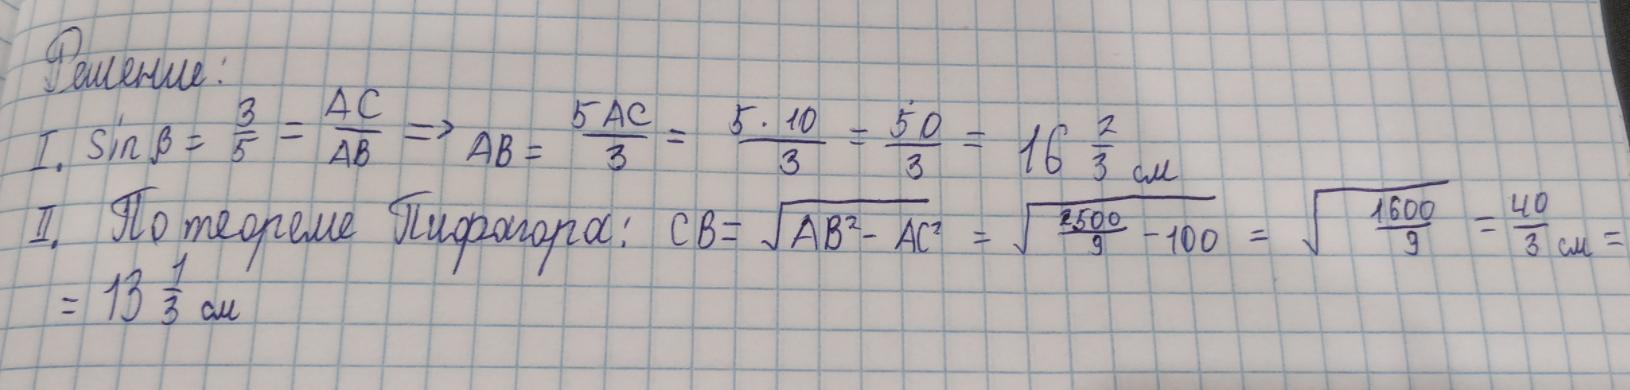 Решение:
I. Sin β = 3/5 = AC/AB => AB = 5AC/3 = 5·10/3 = 50/3 = 16 2/3 см
II. По теореме Пифагора: CB = √(AB² - AC²) = √(2500/9 - 100) = √(1600/9) = 40/3 см =
= 13 1/3 см